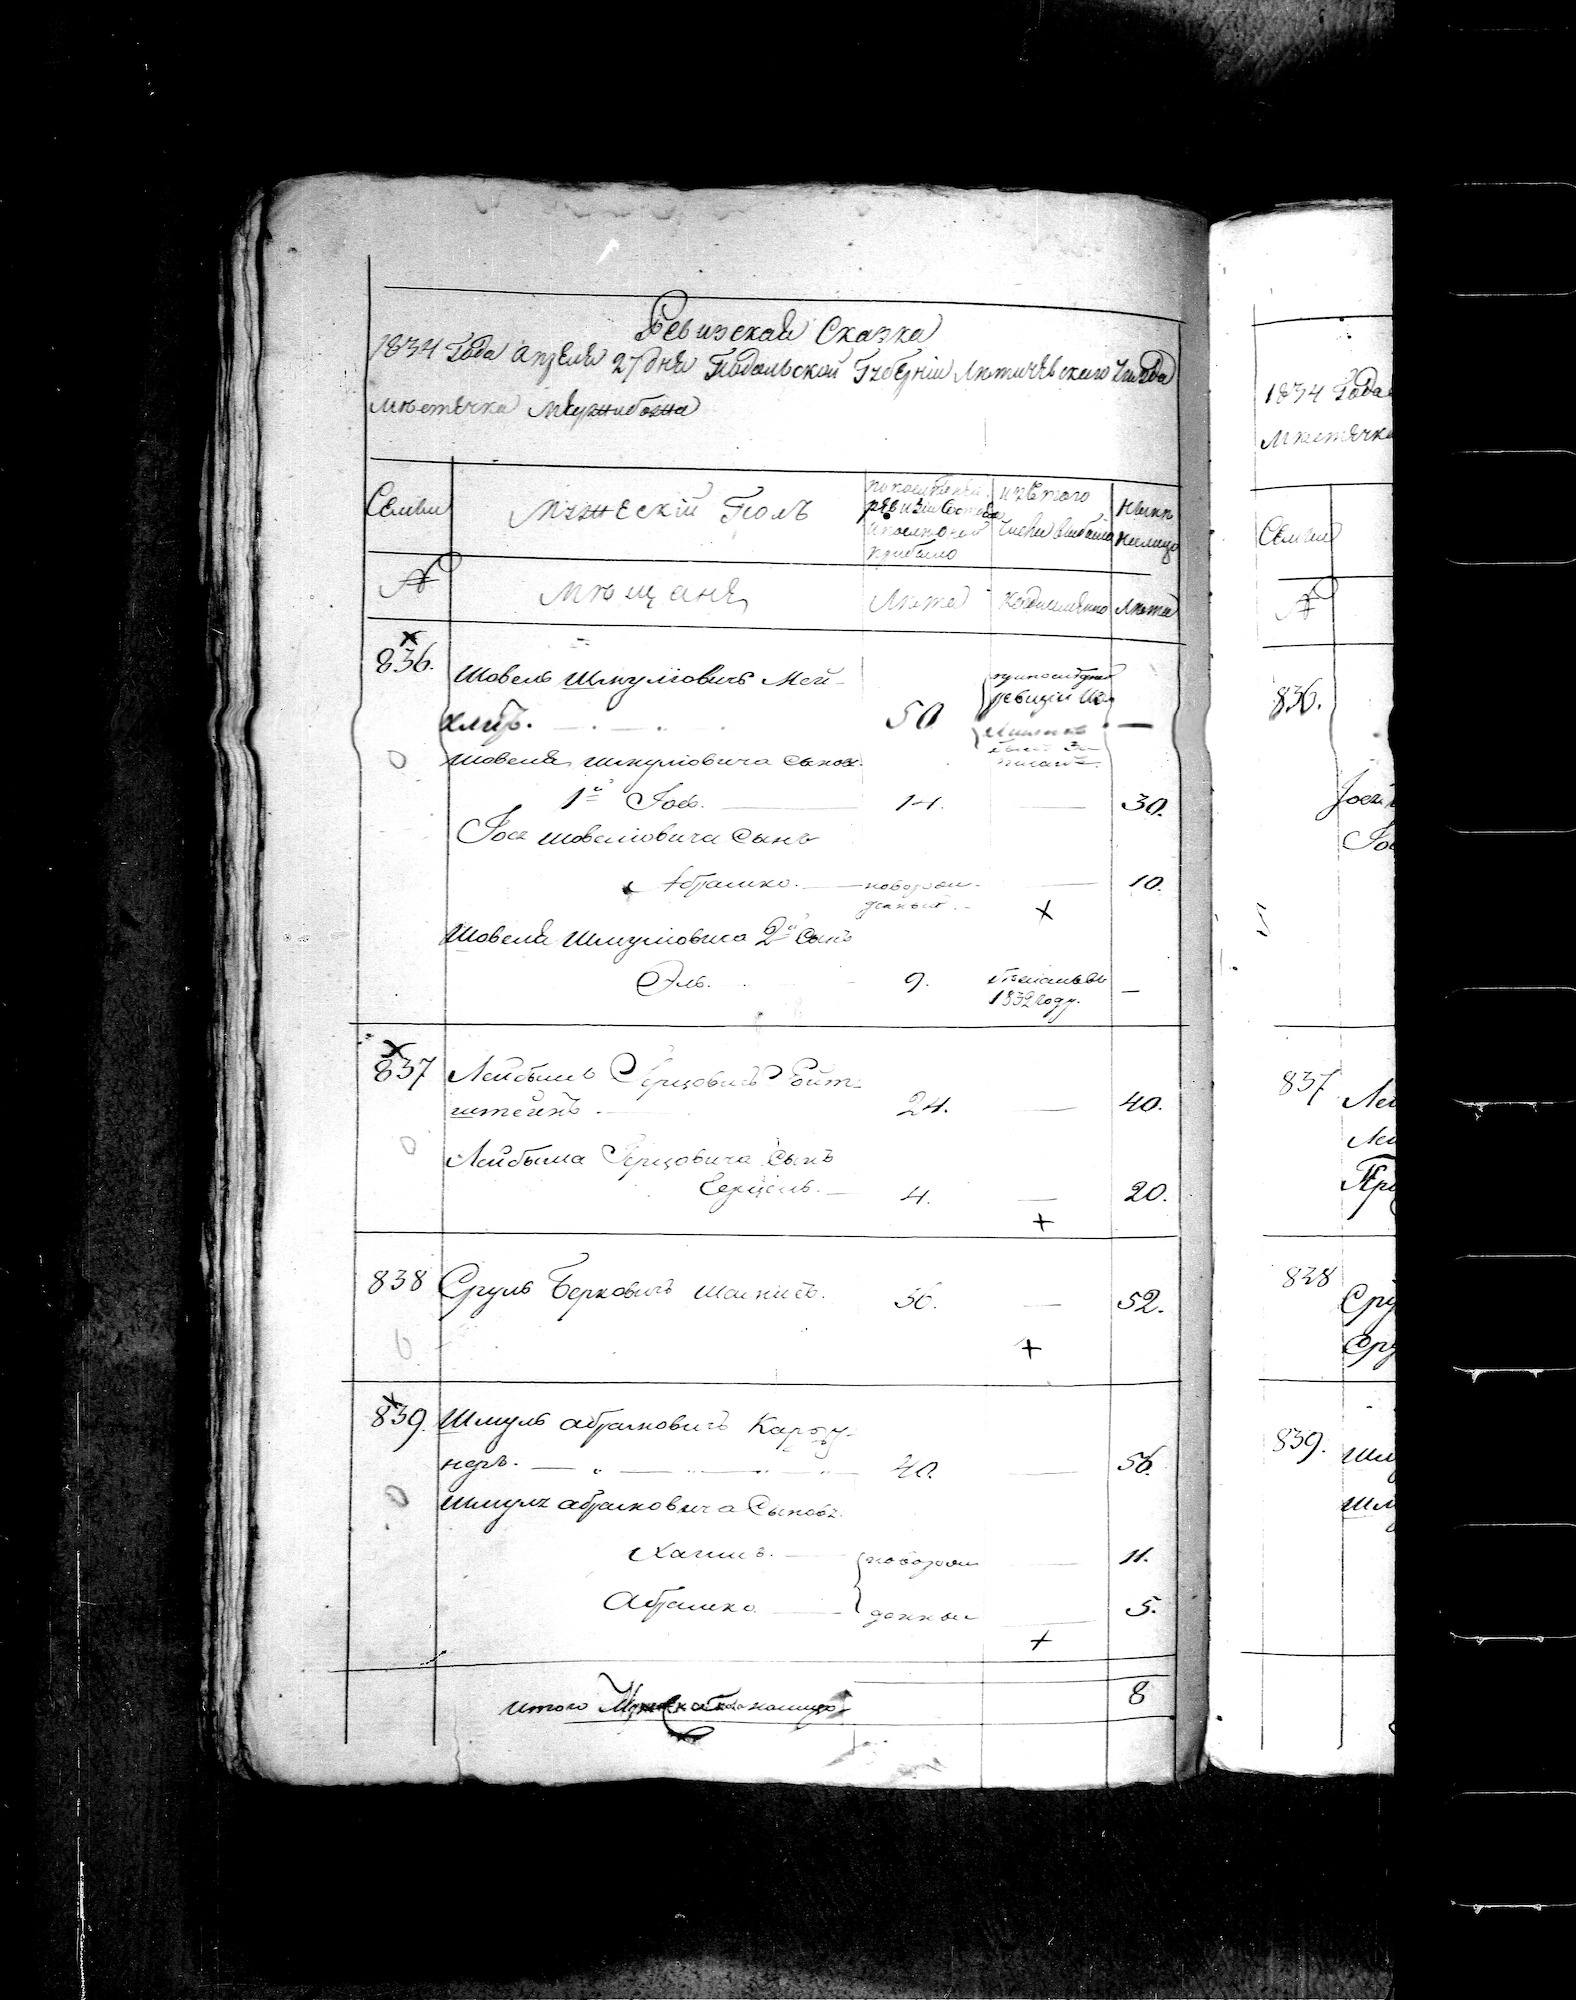 Ревизская Сказка
1834 Года апреля 27 дня Подольской Губерніи Летичевского уезда
местечка Межибожа
Семьи
Мужескій Полъ
по последней
ревизіи Состояло
и после оной
прибыло
изъ того
числа выбыло
Ныне
на лицо
№
мещане
Лета
Когда именно
Лета
836.
Шовель Шмуліовичъ Мей-
хлиръ.
50
—
Шовеля Шмуліовича Сынов.
1й Іось.
14.
—
30.
Іося Шовеліовича Сынъ
Абрашко.
новорож-
денный.
—
10.
Шовеля Шмуліовича 2й Сынъ
Эль.
9.
1832 году.
—
837
Лейбышъ Герцовичъ Ройт-
штейнъ.
24.
—
40.
Лейбыша Герцовича Сынъ
Герцель.
4.
—
20.
838
Сруль Берковичъ
36.
—
52.
839.
Шмуль абрамовичъ
неръ.
40.
—
56.
Шмуля абрамовича Сыновъ.
Хаимъ.
новорож
—
11.
Абрашко
денные
—
5.
итого Мужеска пола на лицо
8
1834 Года
местечка
Семьи
№
836.
837
838
Сру
Сру
839.
Шму
Шм